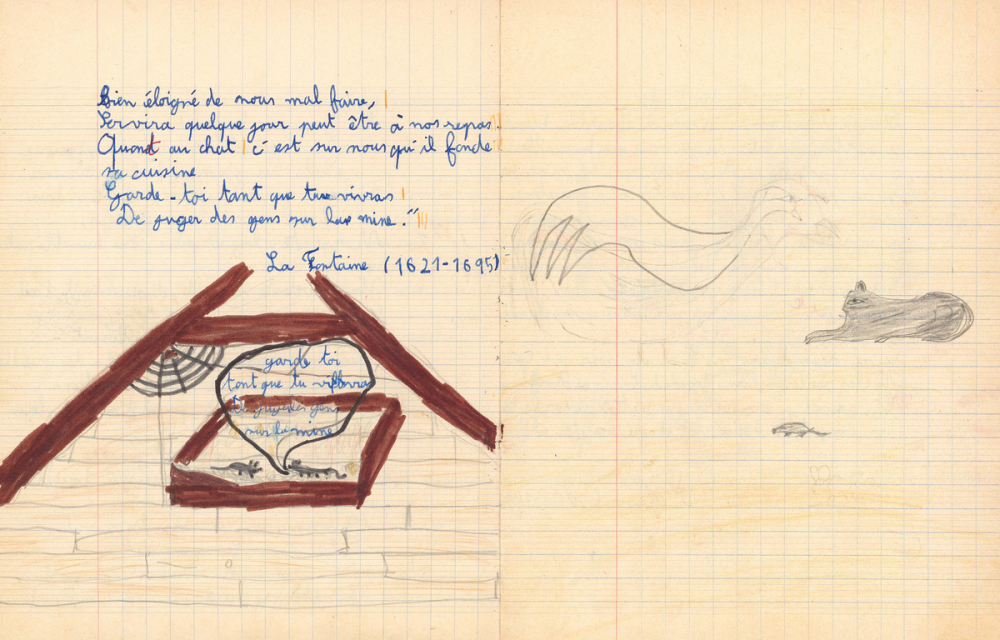 Bien éloigné de nous mal faire,
Servira quelque jour peut être à nos repas.
Quand au chat c'est sur nous qu'il fonde
sa cuisine
Garde-toi tant que tu vivras
De juger des gens sur la mine."
La Fontaine (1621-1695)
garde toi
tant que tu vivras
De juger des gens
sur la mine